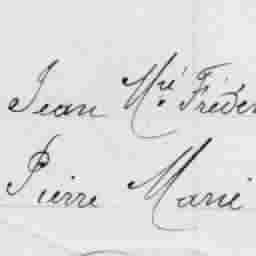 Jean Mié Fréder
Pierre Marie